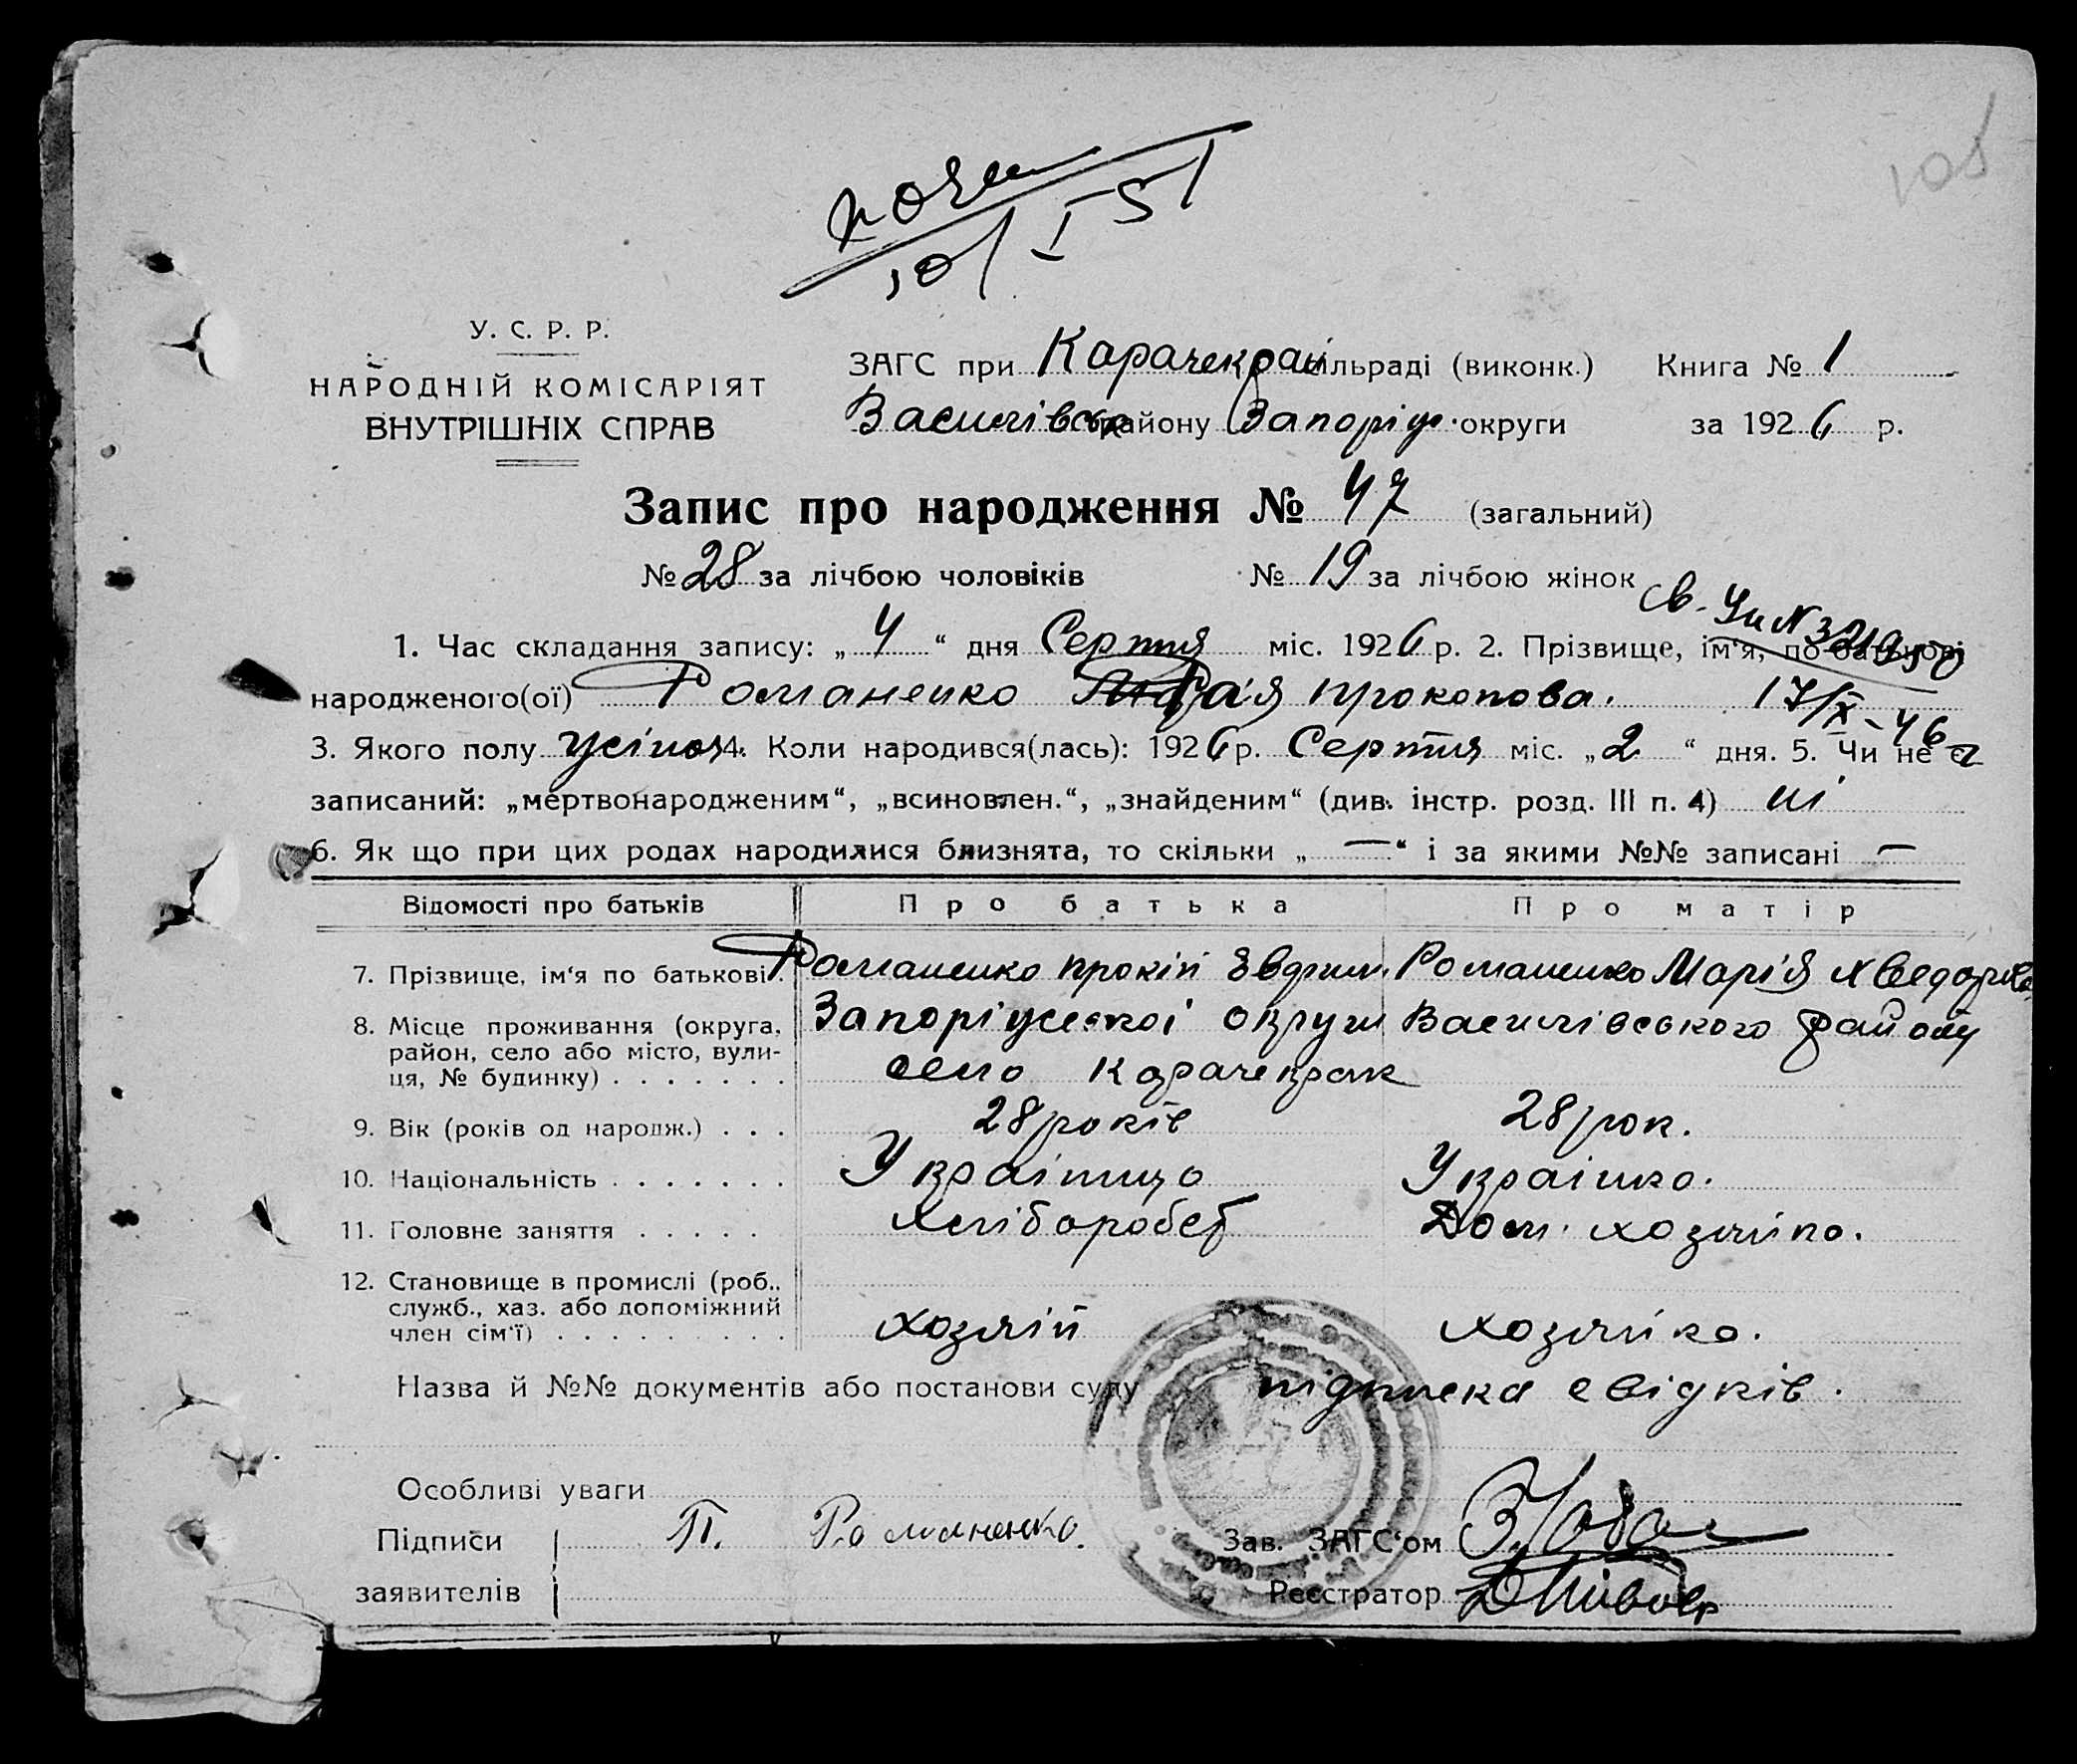 101
10/I 51
У. С. Р. Р.
НАРОДНІЙ КОМІСАРІЯТ
ВНУТРІШНІХ СПРАВ
ЗАГС при Карачекрак сільраді (виконк.) Книга № 1
Василівськ району Запоріж. округи за 1926 р.
Запис про народження № 47 (загальний)
№ 28 за лічбою чоловіків № 19 за лічбою жінок
св.
1. Час складання запису: „4“ дня Серпня міс. 1926 р. 2. Прізвище, ім'я, по батькові
народженого(ої) Романенко прокопова. 17/X-46
3. Якого полу жіноч 4. Коли народився(лась): 1926 р. Серпня міс. „2“ дня. 5. Чи не є
записаний: „мертвонародженим“, „всиновлен.“, „знайденим“ (див. інстр. розд. III п. 4) ні
6. Як що при цих родах народилися близнята, то скільки „—“ і за якими №№ записані —
Відомості про батьків Про батька Про матір
7. Прізвище, ім'я по батькові. Романенко прокіп Євдким. Романенко Марія Хведорова
8. Місце проживання (округа, Запоріжської округи Василівського району
район, село або місто, вули-
ця, № будинку) . . . . . . . село Карачекрак
9. Вік (років од народж.) . . . 28 років 28 рок.
10. Національність . . . . . . . Українць Українка.
11. Головне заняття . . . . . Хлібороб Дом. хозяйка.
12. Становище в промислі (роб.,
служб., хаз. або допоміжний
член сім'ї) . . . . . . . . . хозяїн хозяйка.
Назва й №№ документів або постанови суду підписка свідків.
Особливі уваги
Підписи П. Романенко. Зав. ЗАГС'ом
заявителів Реєстратор